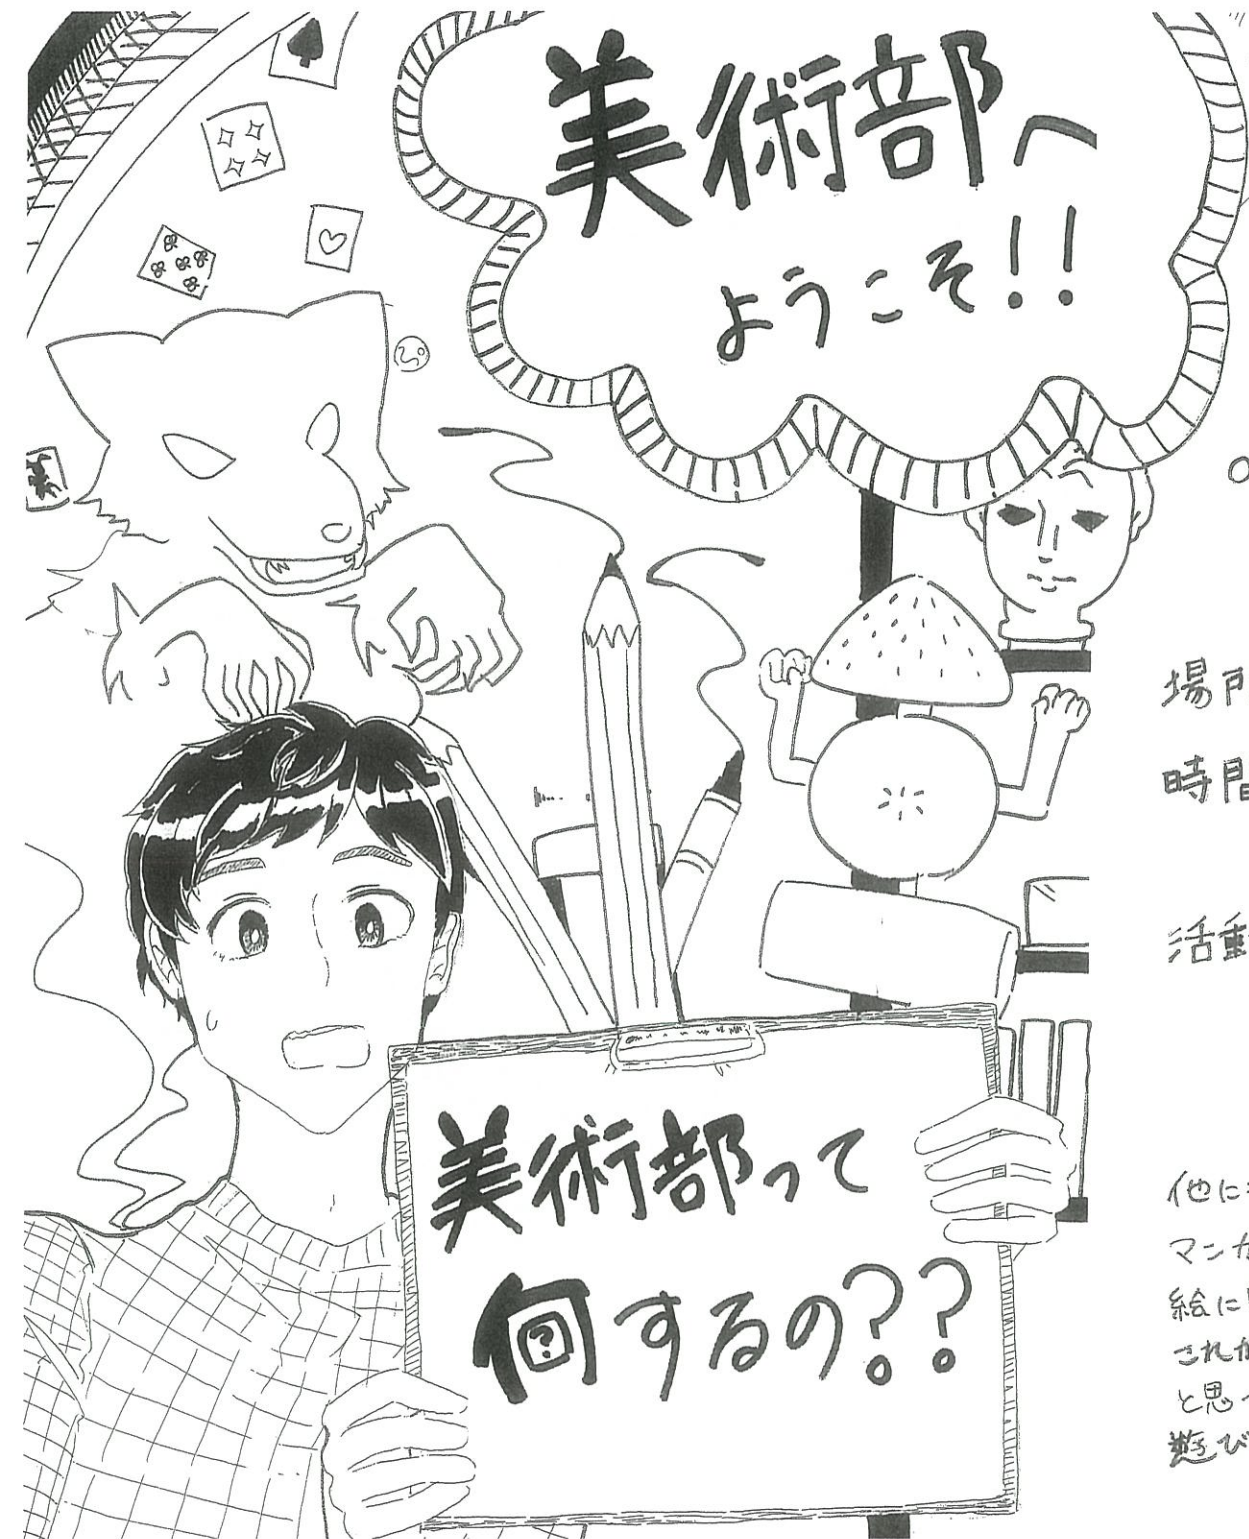 美術部へ
ようこそ!!
美術部って
何するの??
場所
時間
活動
他に
マンガ
絵に
これか
と思っ
遊び